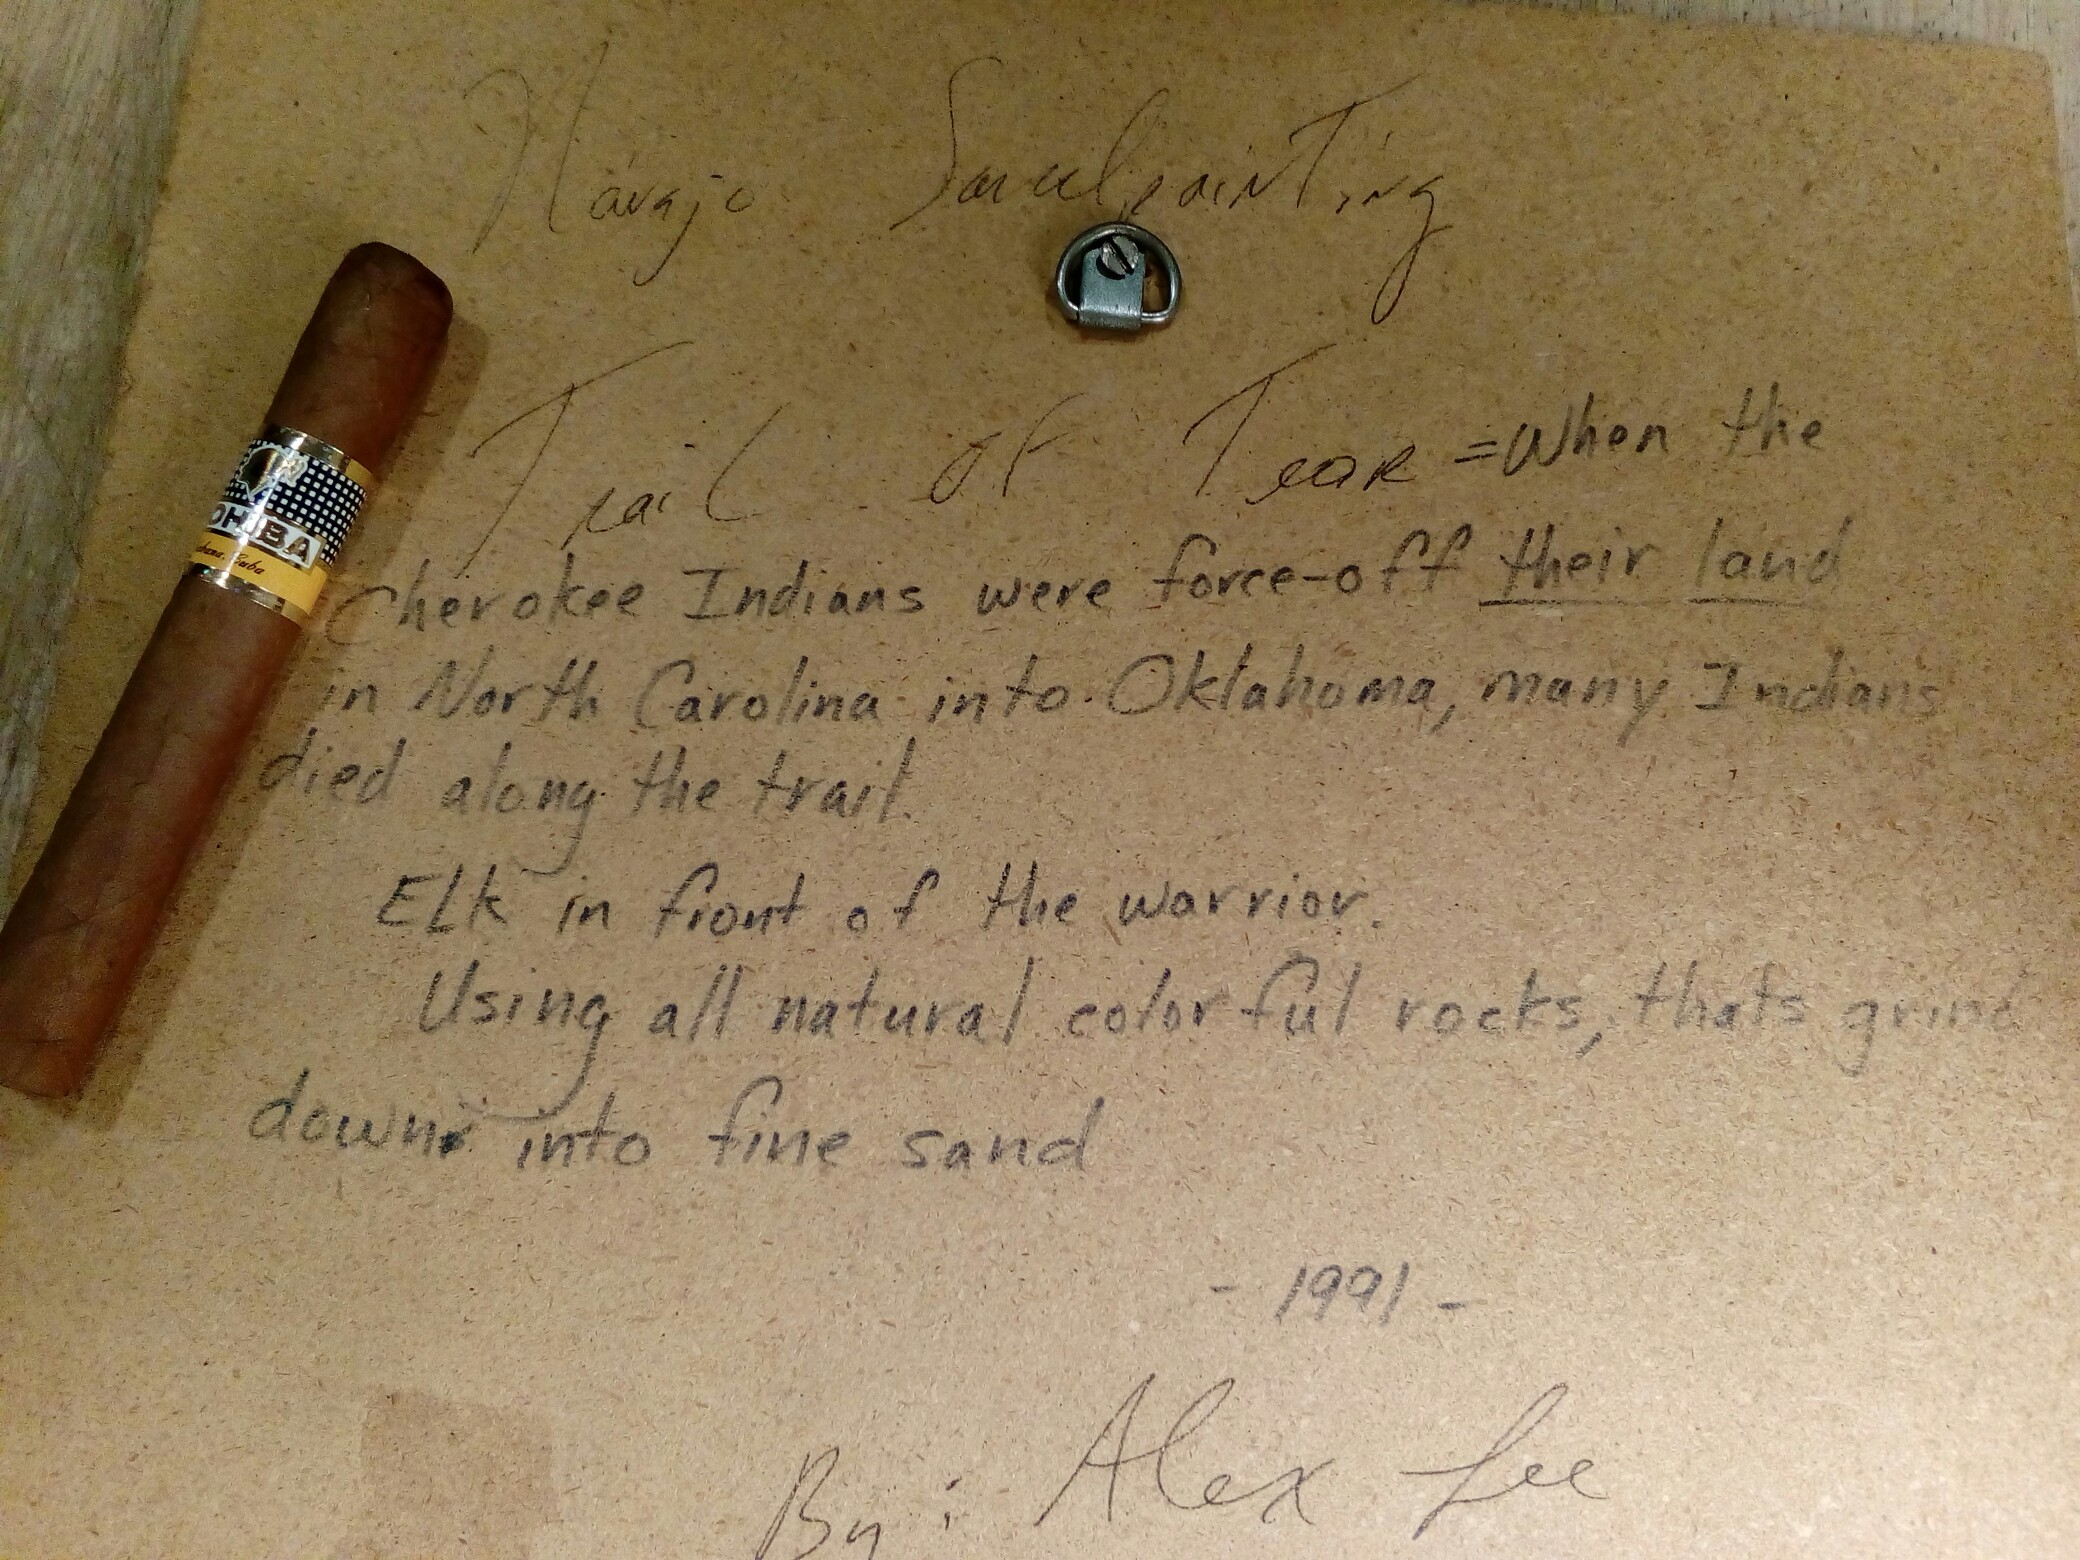 Navajo Sandpainting
Trail of Tear = When the
Cherokee Indians were force-off their land
in North Carolina into Oklahoma, many Indians
died along the trail.
Elk in front of the warrior.
Using all natural colorful rocks, thats grind
down into fine sand
- 1991 -
By: Alex Lee
COHIBA
Habana, Cuba